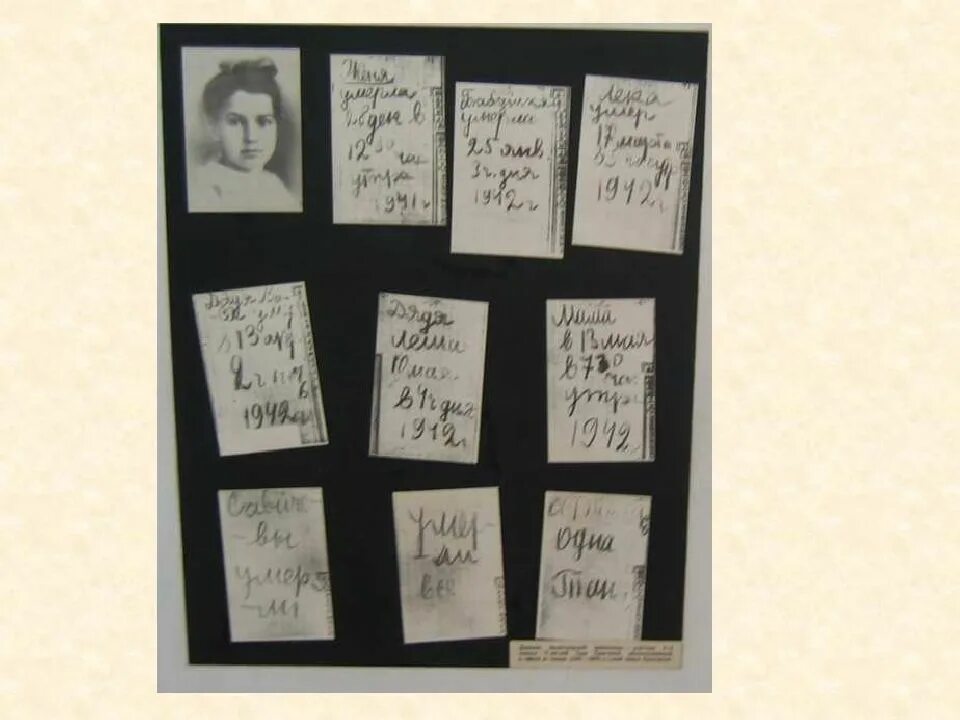 Женя
умерла
28 дек в
12 30 час
утра
1941 г
Бабушка
умерла
25 янв.
3 ч. дня
1942 г.
Лека
умер
17 марта
1942 г.
Дядя Ва-
ся ум
в 13 апр
2 ч ноч
1942 г
Дядя
Леша
10 мая
в 4 ч дня
1942 г
Мама
в 13 мая
в 7 30
час
утра
1942
Савиче
-вы
умер
-ли
умер
ли
все
Осталась
одна
Таня.